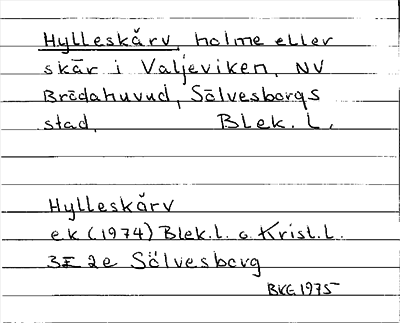 Hylleskärv, holme eller
skär i Valjeviken, NV
Bredahuvud, Sölvesborgs
stad, Blek. L.
Hylleskärv
ek (1974) Blek.l. o Krist.L.
3E 2e Sölvesborg
BKG 1975